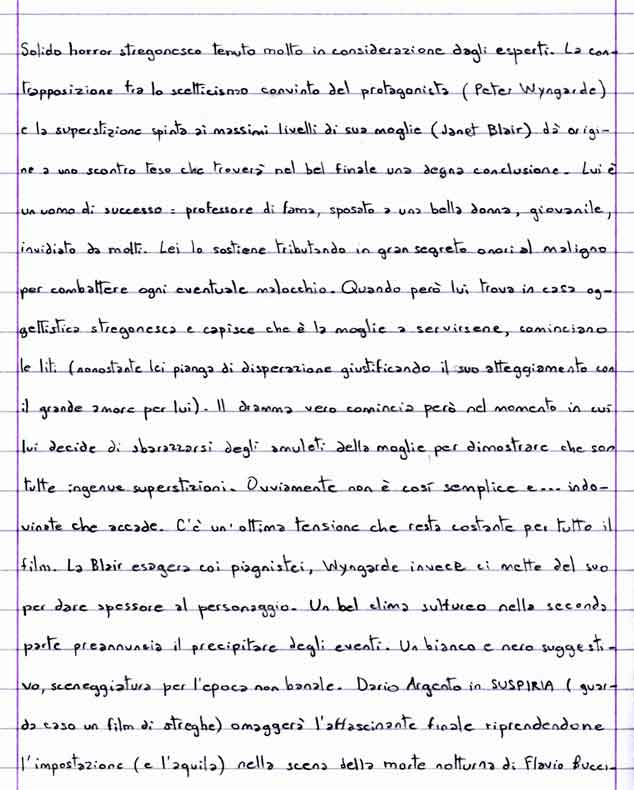 Solido horror stregonesco tenuto molto in considerazione dagli esperti. La con-
trapposizione tra lo scetticismo convinto del protagonista (Peter Wyngarde)
e la superstizione spinta ai massimi livelli di sua moglie (Janet Blair) dà origi-
ne a uno scontro teso che troverà nel bel finale una degna conclusione. Lui è
un uomo di successo: professore di fama, sposato a una bella donna, giovanile,
invidiato da molti. Lei lo sostiene tributando in gran segreto onori al maligno
per combattere ogni eventuale malocchio. Quando però lui trova in casa og-
gettistica stregonesca e capisce che è la moglie a servirsene, cominciano
le liti (nonostante lei pianga di disperazione giustificando il suo atteggiamento con
il grande amore per lui). Il dramma vero comincia però nel momento in cui
lui decide di sbarazzarsi degli amuleti della moglie per dimostrare che son
tutte ingenue superstizioni. Ovviamente non è così semplice e... indo-
vinate che accade. C'è un'ottima tensione che resta costante per tutto il
film. La Blair esagera coi piagnistei, Wyngarde invece ci mette del suo
per dare spessore al personaggio. Un bel clima sulfureo nella seconda
parte preannuncia il precipitare degli eventi. Un bianco e nero suggesti-
vo, sceneggiatura per l'epoca non banale. Dario Argento in SUSPIRIA (guar-
da caso un film di streghe) omaggerà l'affascinante finale riprendendone
l'impostazione (e l'aquila) nella scena della morte notturna di Flavio Bucci.